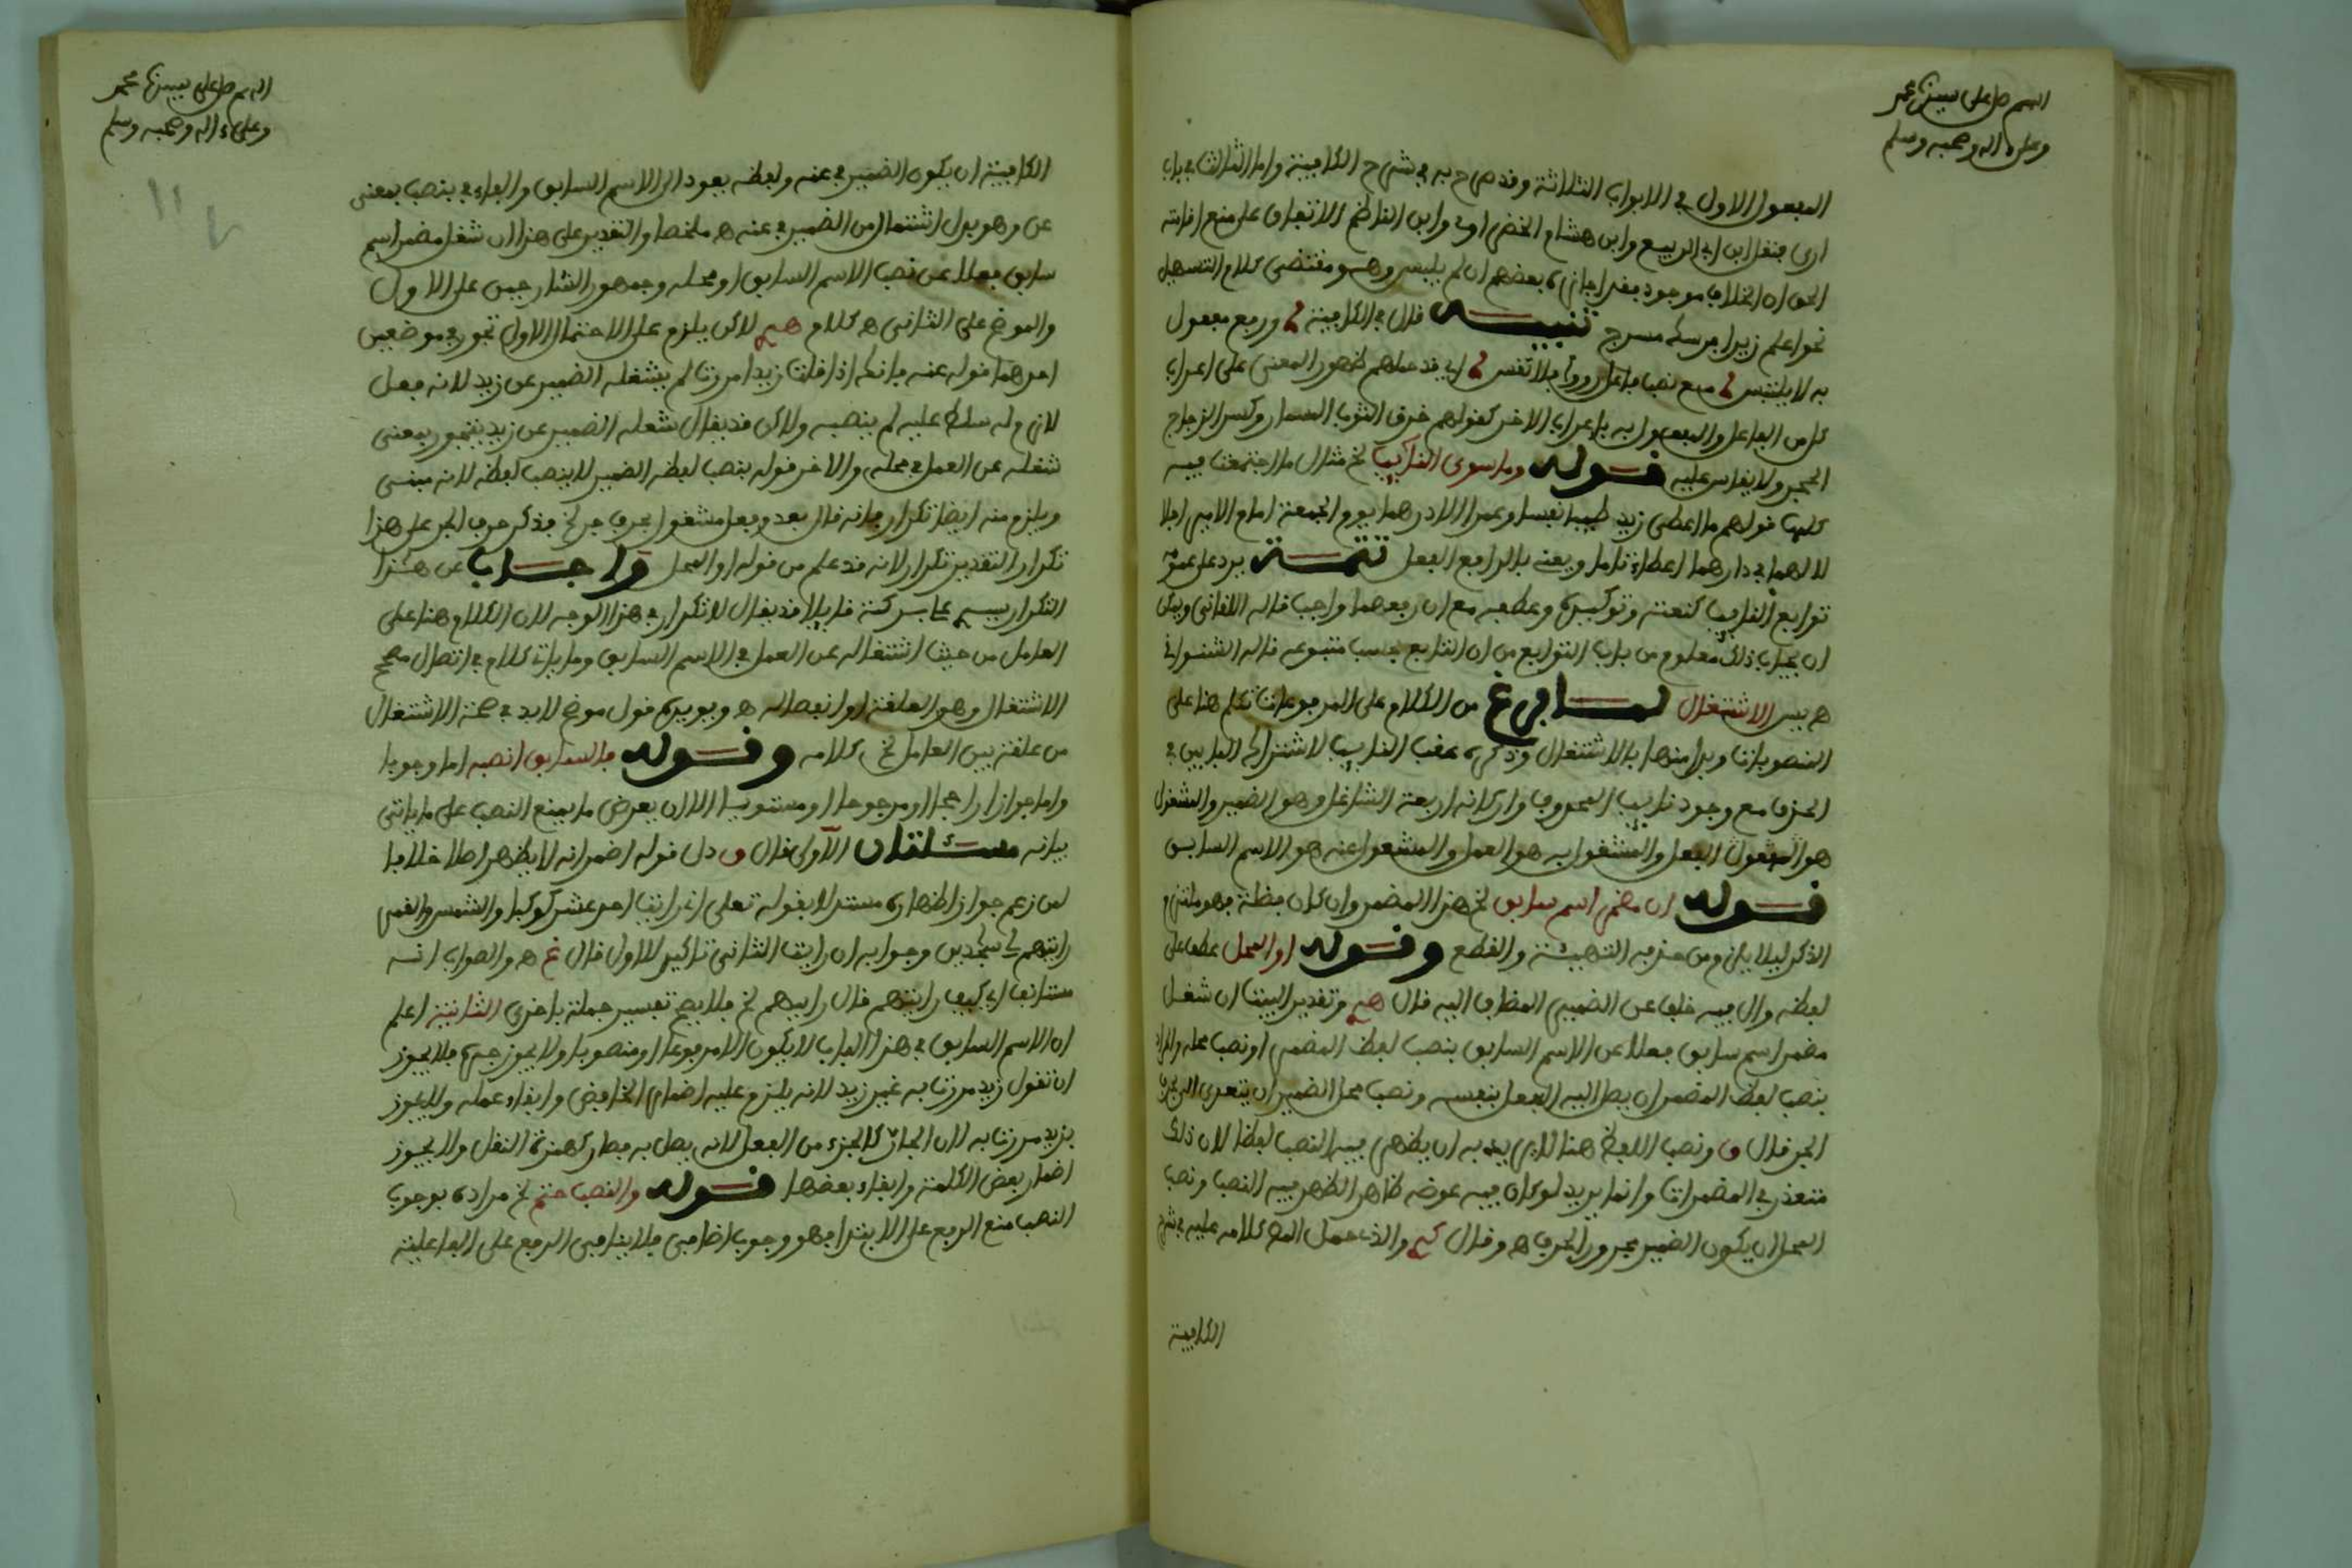 اللهم صل على سيدنا محمد
وعلى ءاله وصحبه وسلم
المفعول الاول في الابواب الثلاثة وقد صرح به في شرح الكافية واما الثالث في باب
ارى فنقل ابن ابي الربيع وابن هشام الخضراوي وابن الناظم الاتفاق على منع اقامته
الحق ان الخلاف موجود فقد اجازه بعضهم ان لم يلبس وهو مقتضى كلام التسهيل
نحو اعلم زيدا فرسك مسرج تنبيه قال في الكافية ورفع مفعول
به لا يلتبس مع نصب فاعل رووا فلا تقس اي قد حملهم ظهور المعنى على اعراب
كل من الفاعل والمفعول به باعراب الاخر كقولهم خرق الثوب المسمار وكسر الزجاج
الحجر ولا يقاس عليه قوله وما سوى النائب الخ مثال ما اجتمعت فيه
كلها قولهم ما اعطى زيد طيبا نفسا وعمرا الا درهما يوم الجمعة امام الامير اجلا
لا لهما في دارهما اعطاء تاما ويعني بالرافع الفعل تتمة يرد على
توابع النائب كنعته وتوكيده وعطفه مع ان رفعهما واجب قاله اللقاني ويمكن
ان يجاب ذلك معلوم من باب التوابع من ان التابع بحسب متبوعه قاله الشنواني
ه يس الاشتغال لما فرغ من الكلام على المرفوعات تكلم هنا على
المنصوبات وبدا منها بالاشتغال وذكره عقب النائب لاشتراك البابين في
الحذف مع وجود نايب المحذوف واركانه اربعة الشاغل وهو الضمير والمشغول
هو الفعل والمشغول به هو العمل والمشغول عنه هو الاسم السابق
قوله ان مضمر اسم سابق الخ هذا المضمر وان كان فضلة فهو ملتزم
الذكر ليلا يلزم من حذفه التهيئة والقطع وقوله او المحل عطف على
لفظه وال فيه خلف عن الضمير المضاف اليه قال وتقدير البيت ان شغل
مضمر اسم سابق فعلا عن الاسم السابق بنصب لفظ المضمر او نصب محله والمراد
بنصب لفظ المضمر ان يصل اليه الفعل بنفسه ونصب محل الضمير ان يتعدى اليه بحرف
الجر قال ق ونصب اللفظ هنا لا يريد به ان يظهر فيه النصب لفظا لان ذلك
متعذر في المضمرات وانما يريد لو كان فيه عوضه ظاهر الظهر فيه النصب ونصب
المحل ان يكون الضمير مجرورا بحرف ه وقال والذي حمل كلامه عليه في شرح
الكافية
اللهم صل على سيدنا محمد
وعلى ءاله وصحبه وسلم
الكافية ان يكون الضمير في عنه ولفظه يعود الى الاسم السابق والباء في بنصب بمعنى
عن وهو بدل اشتمال من الضمير في عنه ه ملخصا والتقدير على هذا ان شغل مضمر اسم
سابق فعلا عن نصب الاسم السابق او محله وجمهور الشارحين على الاول
والموضح على الثاني ه كلام لاكن يلزم على الاحتمال الاول تجوز في موضعين
احدهما قوله عنه فانك اذا قلت زيدا مررت لم يشغله الضمير عن زيد لانه فعل
لازم ولو سلط عليه لم ينصبه ولاكن قد يقال شغله الضمير عن زيد بتجوز بمعنى
شغله عن العمل في محله والاخر قوله بنصب لفظه الضمير لا ينصب لفظه لانه مبني
ويلزم منه ايضا تكرار فانه قال بعد وفعل مشغول بحرف جر الخ فذكر حرف الجر على هذا
تكرار التقدير تكرار لانه قد علم من قوله او المحل واجاب عن هذا
التكرار قايلا قد يقال لا تكرار في هذا الوجه لان الكلام هنا على
العامل من حيث اشتغاله عن العمل في الاسم السابق وما يات كلام في اتصال مصحح
الاشتغال وهو العلقة او انفصاله ه ويويده قول موضح لابد في صحة الاشتغال
من علقة بين العامل الخ كلامه وقوله فالسابق انصبه اما وجوبا
واما جوازا راجحا او مرجوحا او مستويا الا ان يعرض ما يمنع النصب على ما ياتي
بيانه مسئلتان الاولى قال ق دل قوله اضمر انه لا يظهر اصلا خلافا
لمن زعم جواز اظهاره مستدلا بقوله تعلى اني رايت احد عشر كوكبا والشمس والقمر
رايتهم لي سجدين وجوابه ان رايت الثاني تاكيد للاول قال غ ه والصواب انه
مستانف اي كيف رايتهم قال رايتهم الخ فلا يصح تفسير جملة باخرى الثانية اعلم
ان الاسم السابق في هذا الباب لا يكون الا مرفوعا او منصوبا ولا يجوز جره فلا يجوز
ان تقول زيد مررت به غير زيد لانه يلزم عليه اضمار الخافض وابقاء عمله ولا يجوز
بزيد مررت به لان الجار كالجزء من الفعل لانه يصل به فصار كهمزة النقل ولا يجوز
اضمار بعض الكلمة وابقاء بعضها قوله والنصب حتم الخ مراده بوجوب
النصب منع الرفع على الابتدا فهو وجوب اضافي فلا ينافي الرفع على الفاعلية